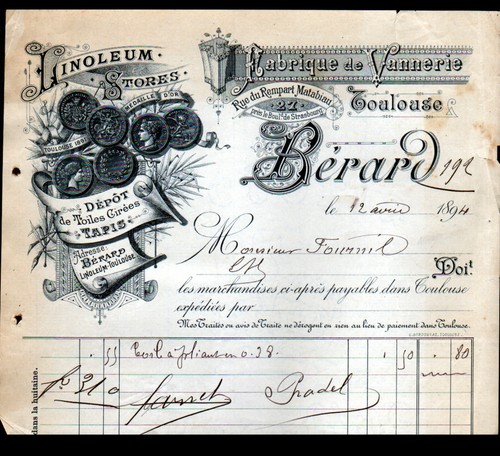 LINOLEUM
STORES
MÉDAILLE D'OR
TOULOUSE
DÉPÔT
de Toiles Cirées
TAPIS
Adresse:
BÉRARD
LINOLEUM-TOULOUSE
Fabrique de Vannerie
Rue du Rempart Matabiau
27
près le Boul.d de Strasbourg
Toulouse
Bérard
192
le 12 avril 1894
Monsieur Fournil
Doit
les marchandises ci-après payables dans Toulouse
expédiées par
Mes Traites ou avis de Traite ne dérogent en rien au lieu de paiement dans Toulouse.
55 0.28 1 50 80
310
Pradel
dans la huitaine.